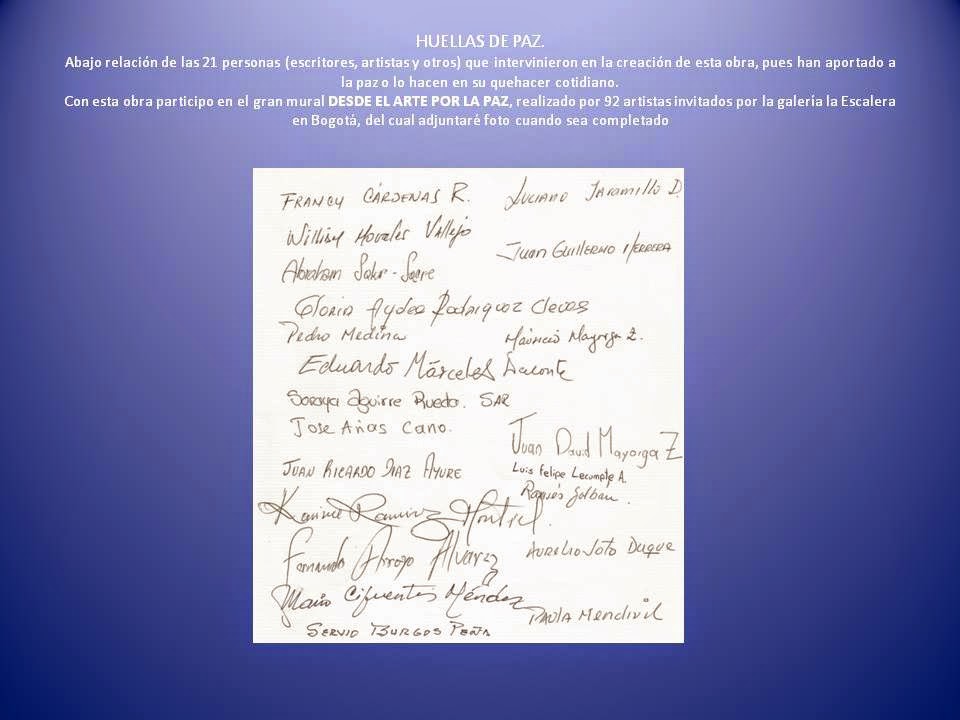 HUELLAS DE PAZ.
Abajo relación de las 21 personas (escritores, artistas y otros) que intervinieron en la creación de esta obra, pues han aportado a
la paz o lo hacen en su quehacer cotidiano.
Con esta obra participo en el gran mural DESDE EL ARTE POR LA PAZ, realizado por 92 artistas invitados por la galería la Escalera
en Bogotá, del cual adjuntaré foto cuando sea completado
FRANCY CÁRDENAS R.
LUCIANO Jaramillo D.
Morales Vallejo
JUAN GUILLERMO HERRERA
Abraham
Gloria Aydee Rodriguez Cleves
Pedro Medina
Mauricio Mayorga Z.
Eduardo Márceles Daconte
Soraya Aguirre Rueda. SAR
Jose Arias Cano.
Juan David Mayorga Z
JUAN RICARDO DIAZ AYURE
Luis Felipe Lecompte A.
Galban
Ramirez Montiel.
Fernando Arroyo Alvarez
AURELIO Soto Duque
Mario Cifuentes Méndez
PAULA Mendivil
SERVIO BURGOS PEÑA